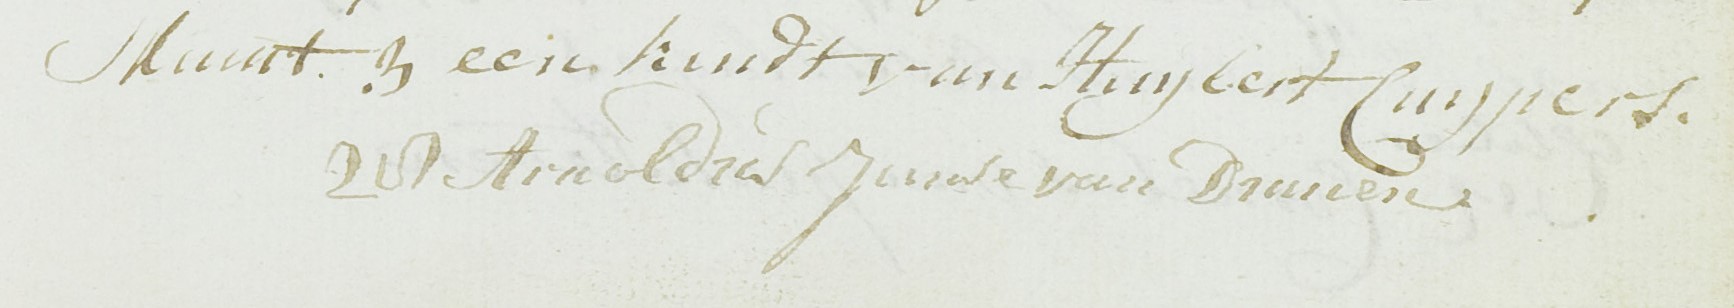 Maart. 3 een kindt van Huybert Cuypers.
28 Arnoldus Janse van Drunen.